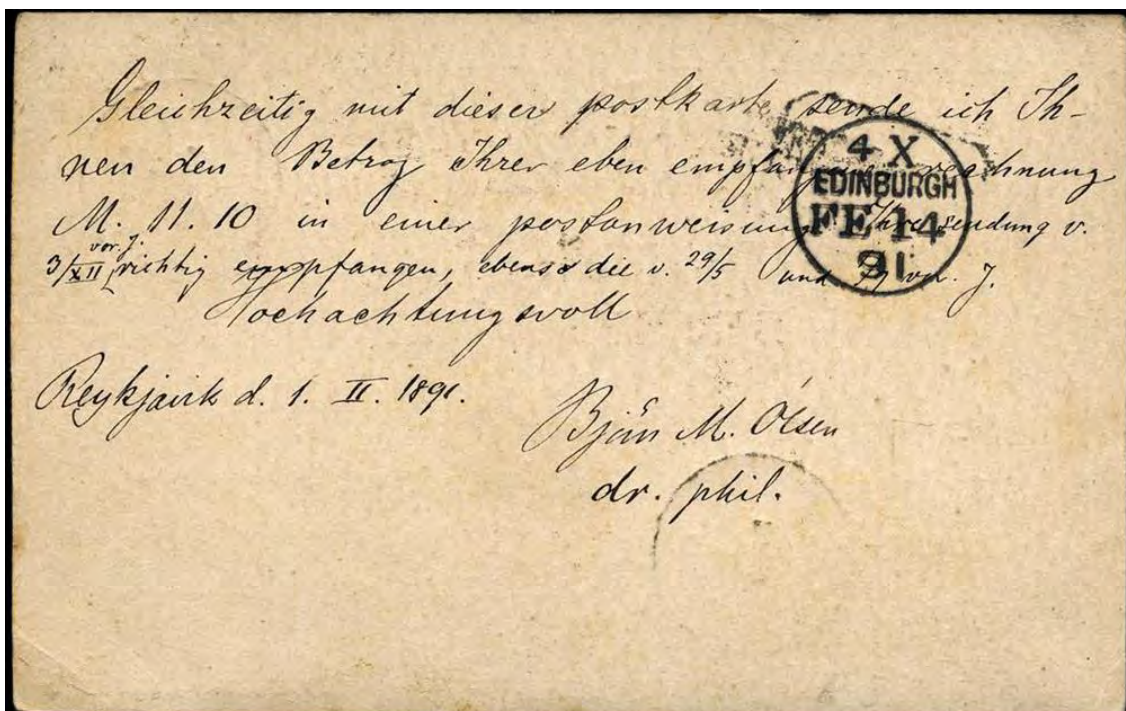 Gleichzeitig mit dieser postkarte sende ich Ih-
nen den Betrag Ihrer eben empfangenen rechnung
M. 11.10 in einer postanweisung. Ihre sendung v.
vor. J.
3/XII richtig empfangen, ebenso die v. 29/5 und vor. J.
Hochachtungsvoll
Reykjavik d. 1. II. 1891.
Björn M. Ólsen
dr. phil.
4 X
EDINBURGH
FE 14
91